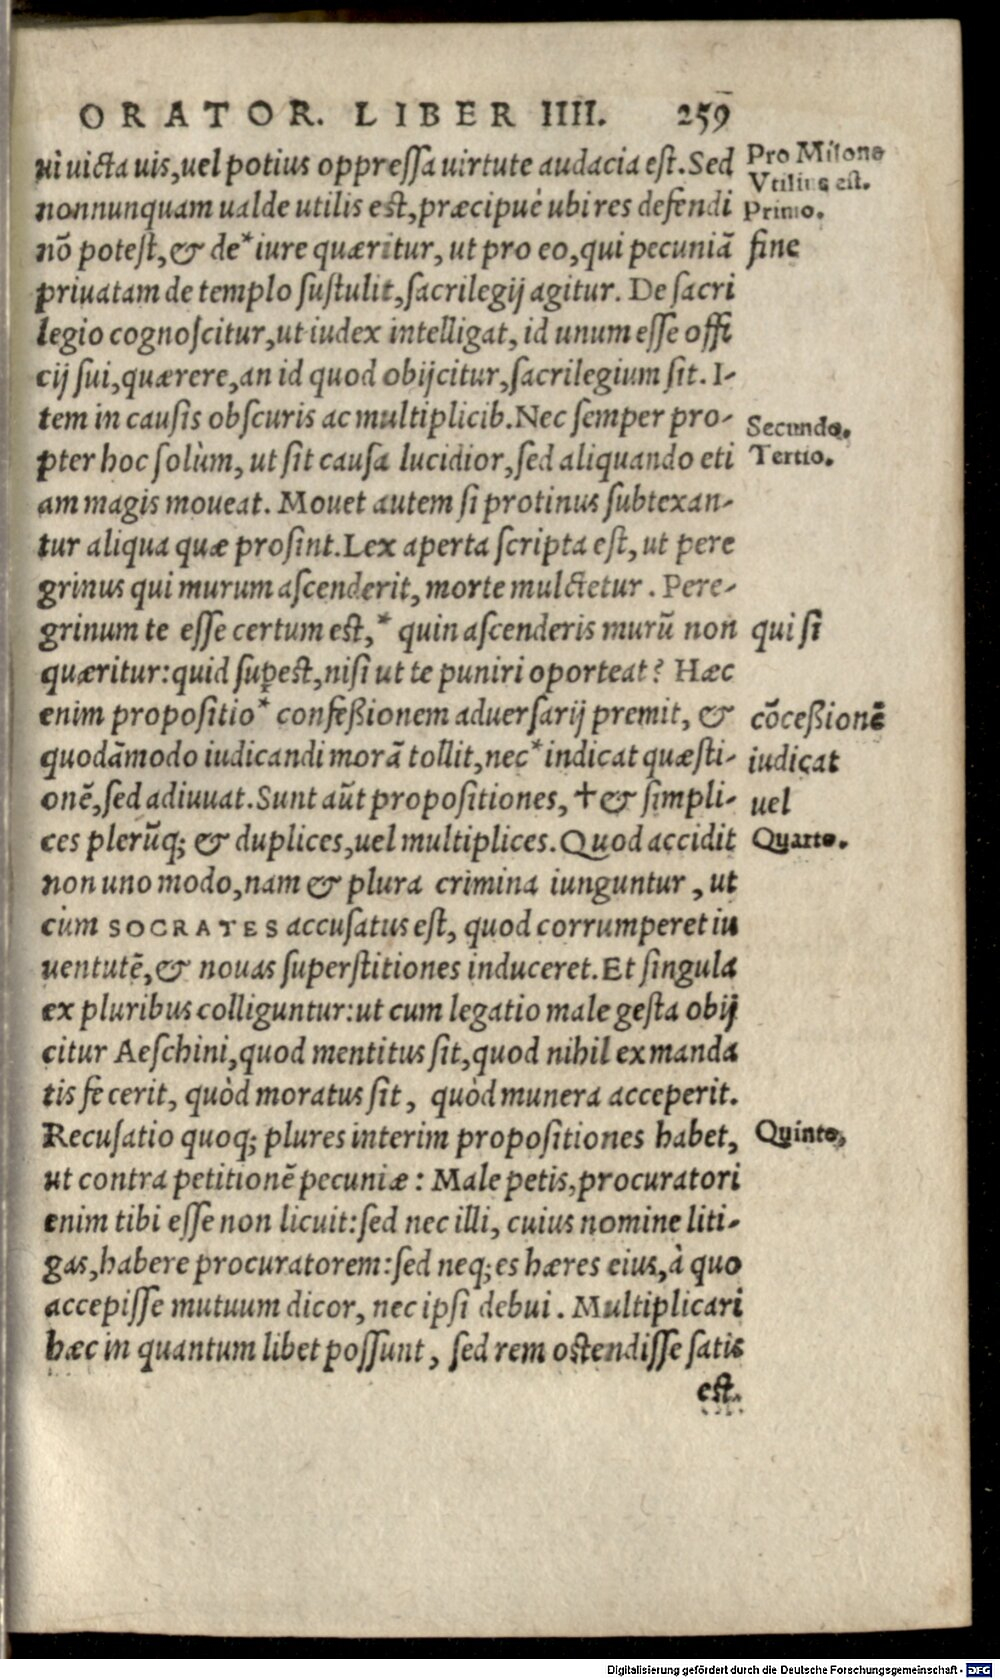 ORATOR. LIBER IIII. 259
ui uicta uis, uel potius oppressa uirtute audacia est. Sed
Pro Milone
Vtilius est.
nonnunquam ualde utilis est, præcipuè ubi res defendi
Primo.
nō potest, & de* iure quæritur, ut pro eo, qui pecuniā
fine
priuatam de templo sustulit, sacrilegij agitur. De sacri
legio cognoscitur, ut iudex intelligat, id unum esse offi
cij sui, quærere, an id quod obijcitur, sacrilegium sit. I-
tem in causis obscuris ac multiplicib. Nec semper pro-
Secundo.
pter hoc solùm, ut sit causa lucidior, sed aliquando eti
Tertio.
am magis moueat. Mouet autem si protinus subtexan-
tur aliqua quæ prosint. Lex aperta scripta est, ut pere
grinus qui murum ascenderit, morte mulctetur. Pere-
grinum te esse certum est,* quin ascenderis murū non
qui si
quæritur: quid supest, nisi ut te puniri oporteat? Hæc
enim propositio* confeßionem aduersarij premit, &
cōceßionē
quodāmodo iudicandi morā tollit, nec* indicat quæsti-
iudicat
onē, sed adiuuat. Sunt aūt propositiones, ✝& simpli-
uel
ces plerūq; & duplices, uel multiplices. Quod accidit
Quarto.
non uno modo, nam & plura crimina iunguntur, ut
cùm SOCRATES accusatus est, quod corrumperet iu
uentutē, & nouas superstitiones induceret. Et singula
ex pluribus colliguntur: ut cum legatio male gesta obij
citur Aeschini, quod mentitus sit, quod nihil ex manda
tis fecerit, quòd moratus sit, quòd munera acceperit.
Recusatio quoq; plures interim propositiones habet,
Quinto,
ut contra petitionē pecuniæ: Male petis, procuratori
enim tibi esse non licuit: sed nec illi, cuius nomine liti-
gas, habere procuratorem: sed neq; es hæres eius, à quo
accepisse mutuum dicor, nec ipsi debui. Multiplicari
hæc in quantum libet possunt, sed rem ostendisse satis
est.
Digitalisierung gefördert durch die Deutsche Forschungsgemeinschaft - DFG